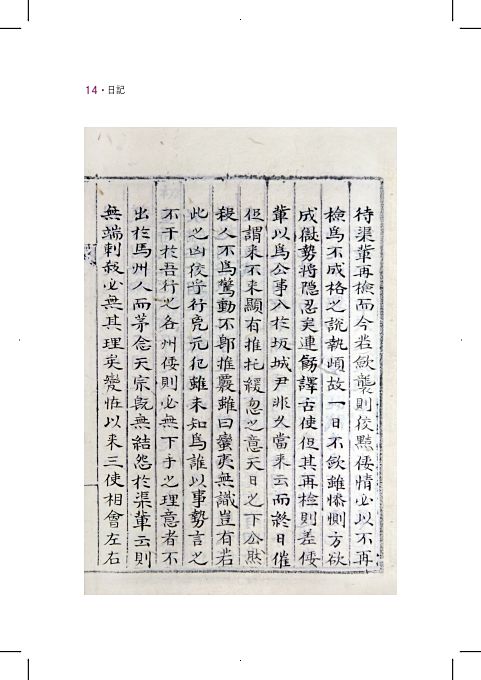 14 · 日記
待渠輩再檢而今若斂襲則狡黠倭情必以不再
檢爲不成格之說執頉故一日不斂雖慘惻方欲
成獄勢將隱忍矣連飭譯舌使促其再檢則差倭
輩以爲公事入於坂城尹非久當来云而終日催
促謂来不来顯有推托緩忽之意天日之下公肰
殺人不爲驚動不郞推覈雖曰蠻夷無識豈有若
此之凶狡乎行兇元犯雖未知爲誰以事勢言之
不干於吾行之各州倭則必無下手之理意者不
出於馬州人而茅念天宗旣無結怨於渠輩云則
無端刺殺必無其理矣變恠以来三使相會左右